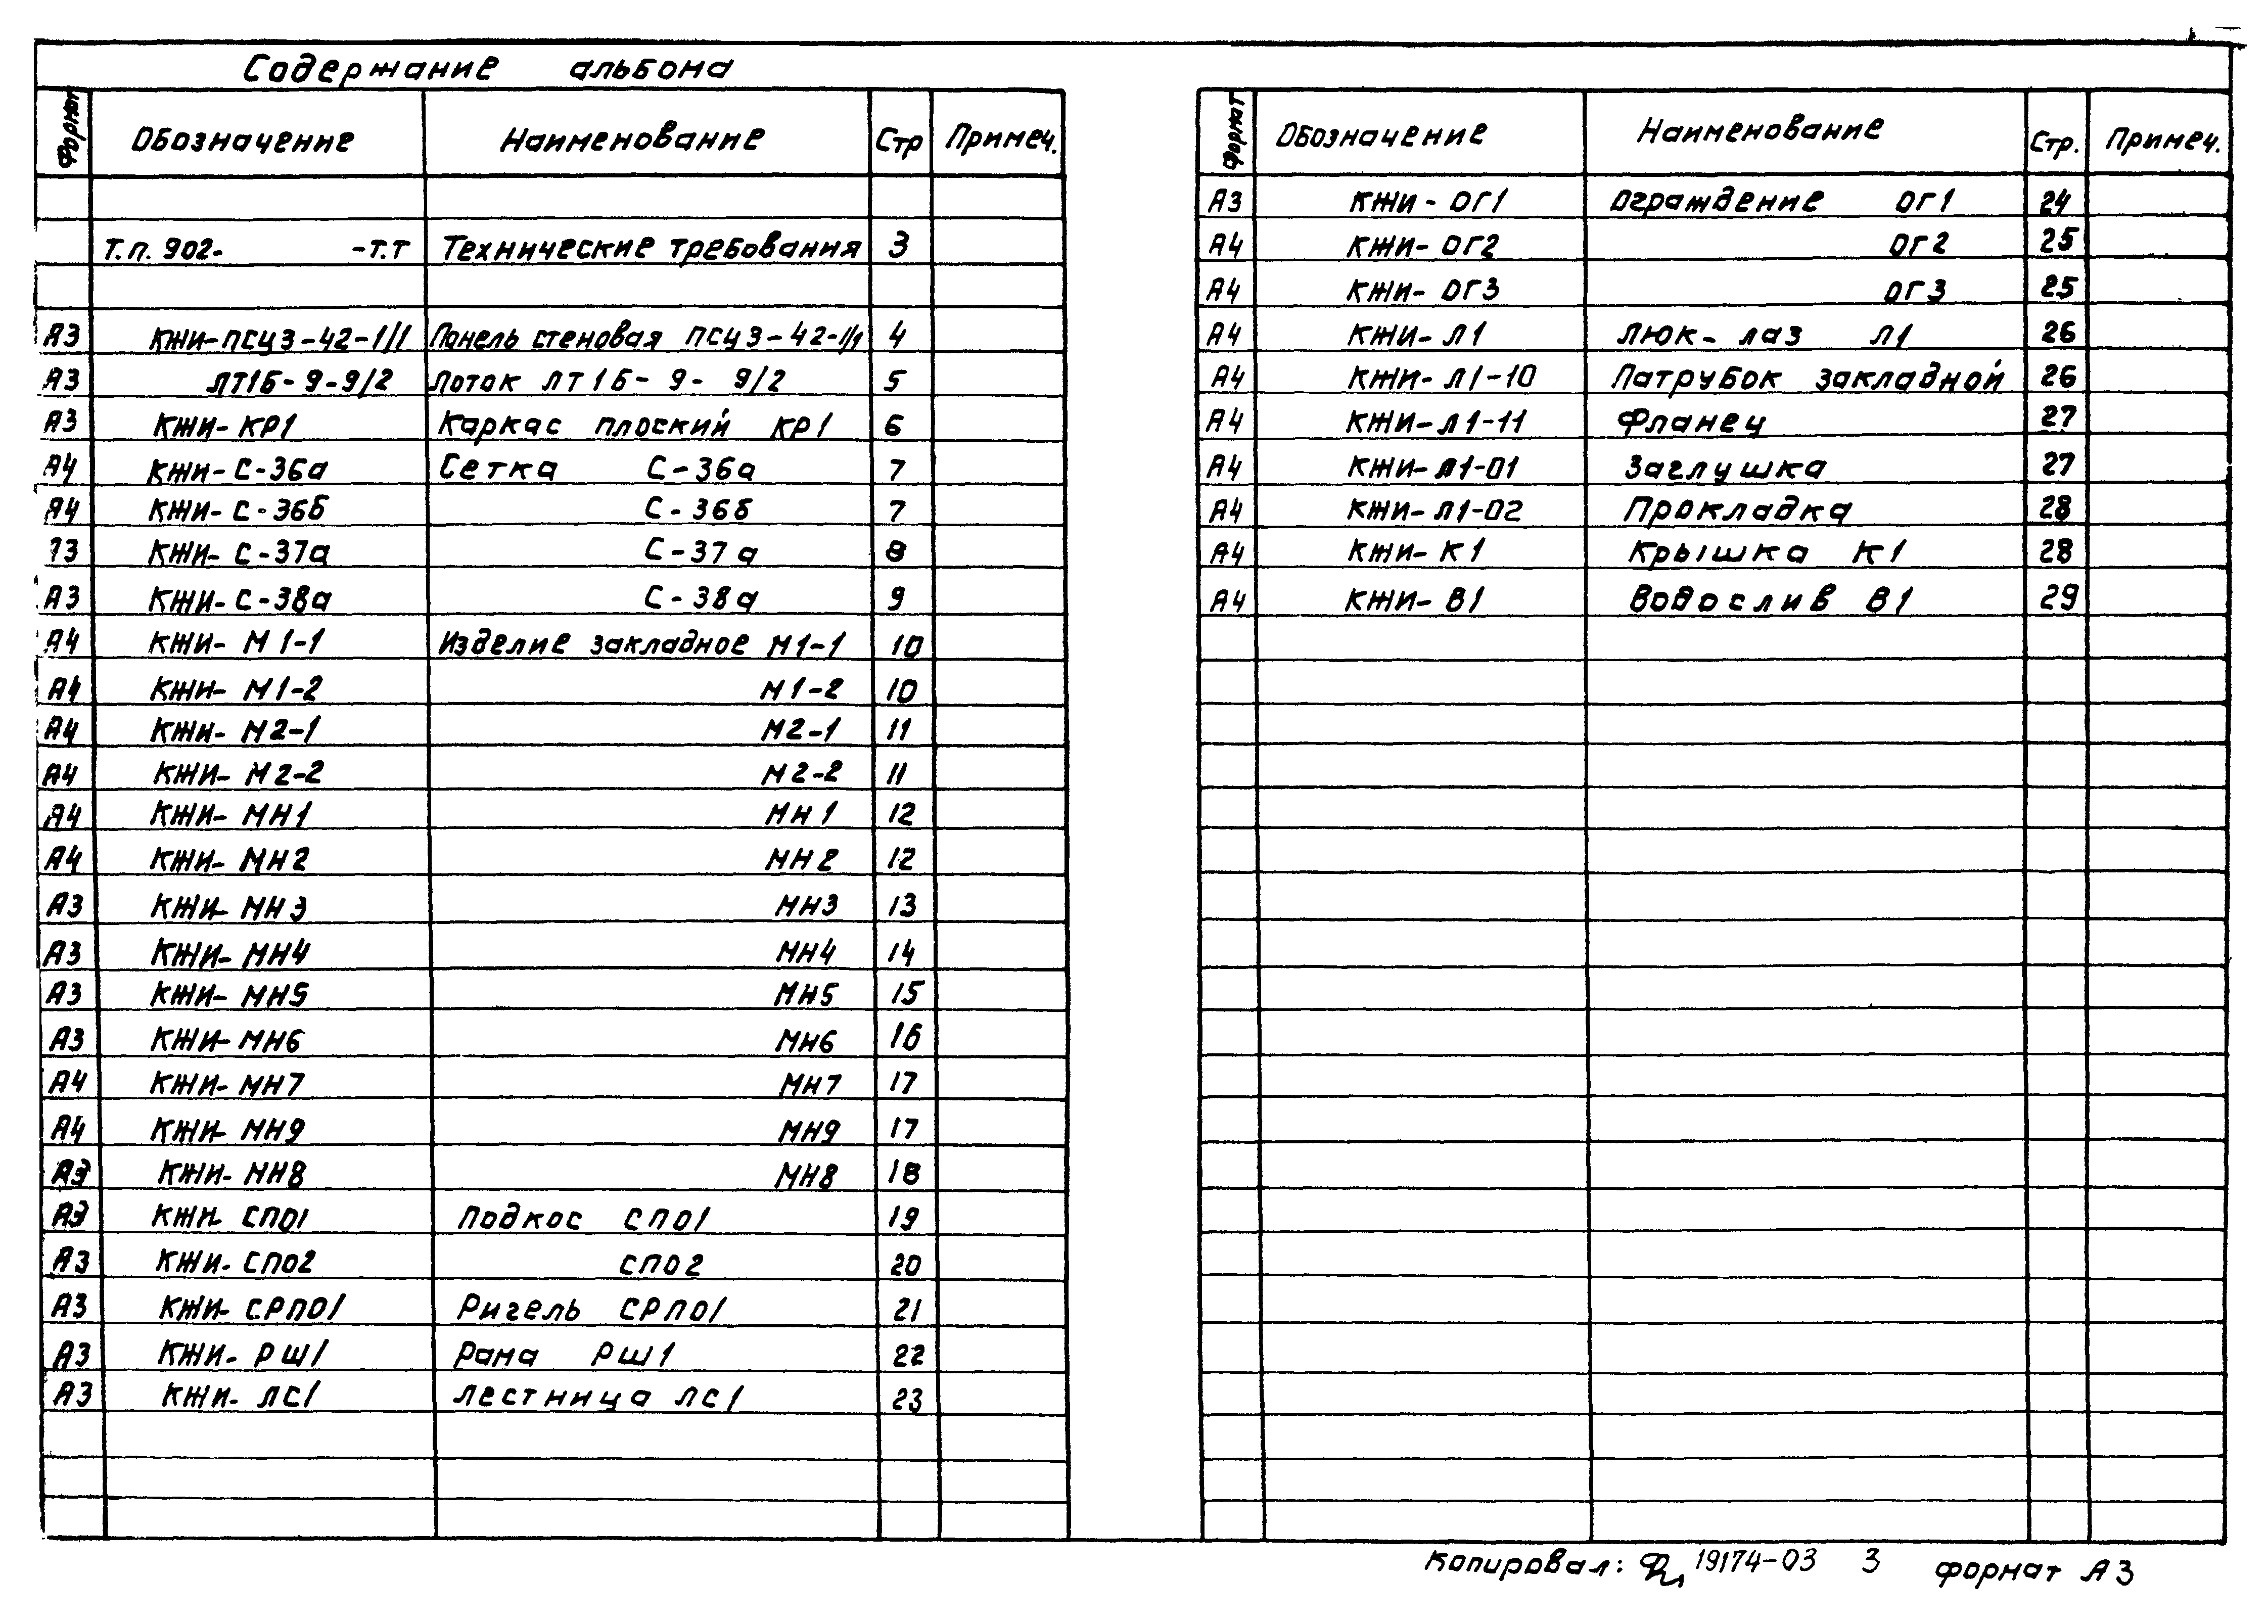 Содержание альбома
Формат Обозначение Наименование Стр Примеч.
Т.п. 902- -Т.Т Технические требования 3
А3 КЖИ-ПСЦ3-42-1/1 Панель стеновая ПСЦ3-42-1/1 4
А3 ЛТ1Б-9-9/2 Лоток ЛТ1Б-9-9/2 5
А3 КЖИ-КР1 Каркас плоский КР1 6
А4 КЖИ-С-36а Сетка С-36а 7
А4 КЖИ-С-36б С-36б 7
А3 КЖИ-С-37а С-37а 8
А3 КЖИ-С-38а С-38а 9
А4 КЖИ-М1-1 Изделие закладное М1-1 10
А4 КЖИ-М1-2 М1-2 10
А4 КЖИ-М2-1 М2-1 11
А4 КЖИ-М2-2 М2-2 11
А4 КЖИ-МН1 МН1 12
А4 КЖИ-МН2 МН2 12
А3 КЖИ-МН3 МН3 13
А3 КЖИ-МН4 МН4 14
А3 КЖИ-МН5 МН5 15
А3 КЖИ-МН6 МН6 16
А4 КЖИ-МН7 МН7 17
А4 КЖИ-МН9 МН9 17
А3 КЖИ-МН8 МН8 18
А3 КЖИ-СП01 Подкос СП01 19
А3 КЖИ-СП02 СП02 20
А3 КЖИ-СРП01 Ригель СРП01 21
А3 КЖИ-РШ1 Рама РШ1 22
А3 КЖИ-ЛС1 Лестница ЛС1 23
Формат Обозначение Наименование Стр. Примеч.
А3 КЖИ-ОГ1 Ограждение ОГ1 24
А4 КЖИ-ОГ2 ОГ2 25
А4 КЖИ-ОГ3 ОГ3 25
А4 КЖИ-Л1 Люк-лаз Л1 26
А4 КЖИ-Л1-10 Патрубок закладной 26
А4 КЖИ-Л1-11 Фланец 27
А4 КЖИ-Л1-01 Заглушка 27
А4 КЖИ-Л1-02 Прокладка 28
А4 КЖИ-К1 Крышка К1 28
А4 КЖИ-В1 Водослив В1 29
Копировал: 19174-03 3 формат А3